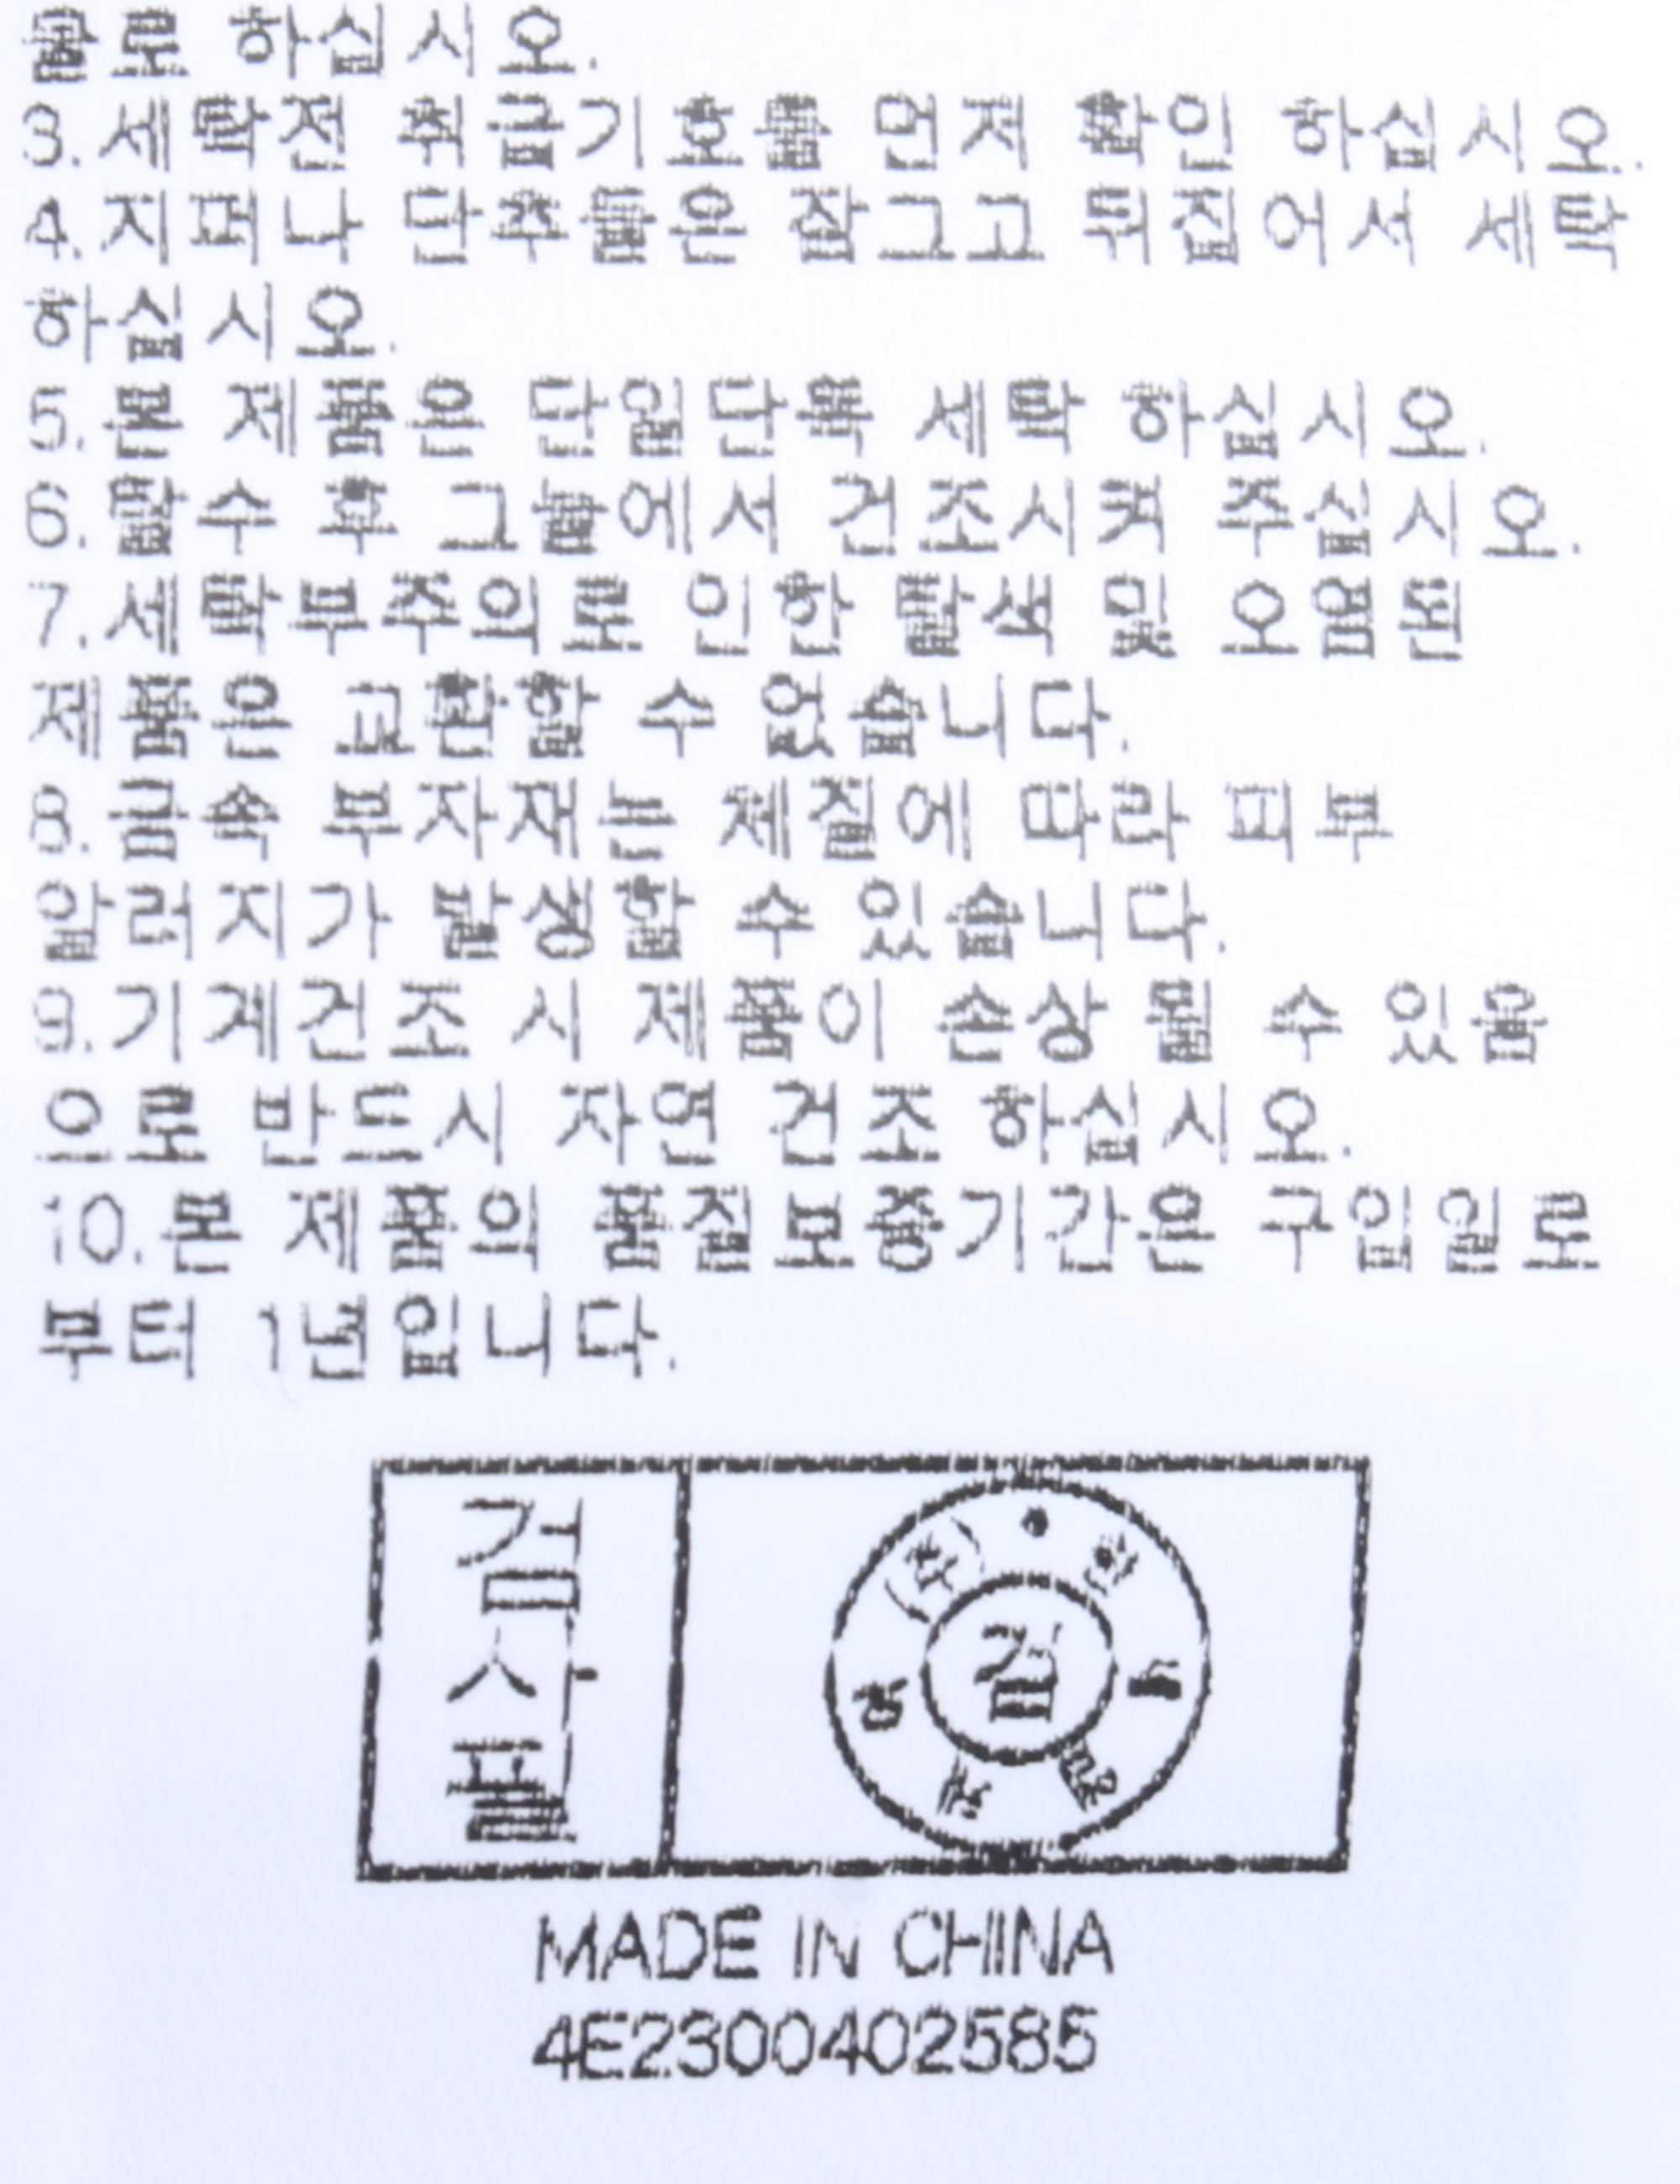 물로 하십시오.
3.세탁전 취급기호를 먼저 확인 하십시오.
4.지퍼나 단추들은 잠그고 뒤집어서 세탁
하십시오.
5.본 제품은 단일단독 세탁 하십시오.
6.탈수 후 그늘에서 건조시켜 주십시오.
7.세탁부주의로 인한 탈색 및 오염된
제품은 교환할 수 없습니다.
8.금속 부자재는 체질에 따라 피부
알러지가 발생할 수 있습니다.
9.기계건조 시 제품이 손상 될 수 있음
으로 반드시 자연 건조 하십시오.
10.본 제품의 품질보증기간은 구입일로
부터 1년입니다.
검사필
검
MADE IN CHINA
4E2300402585